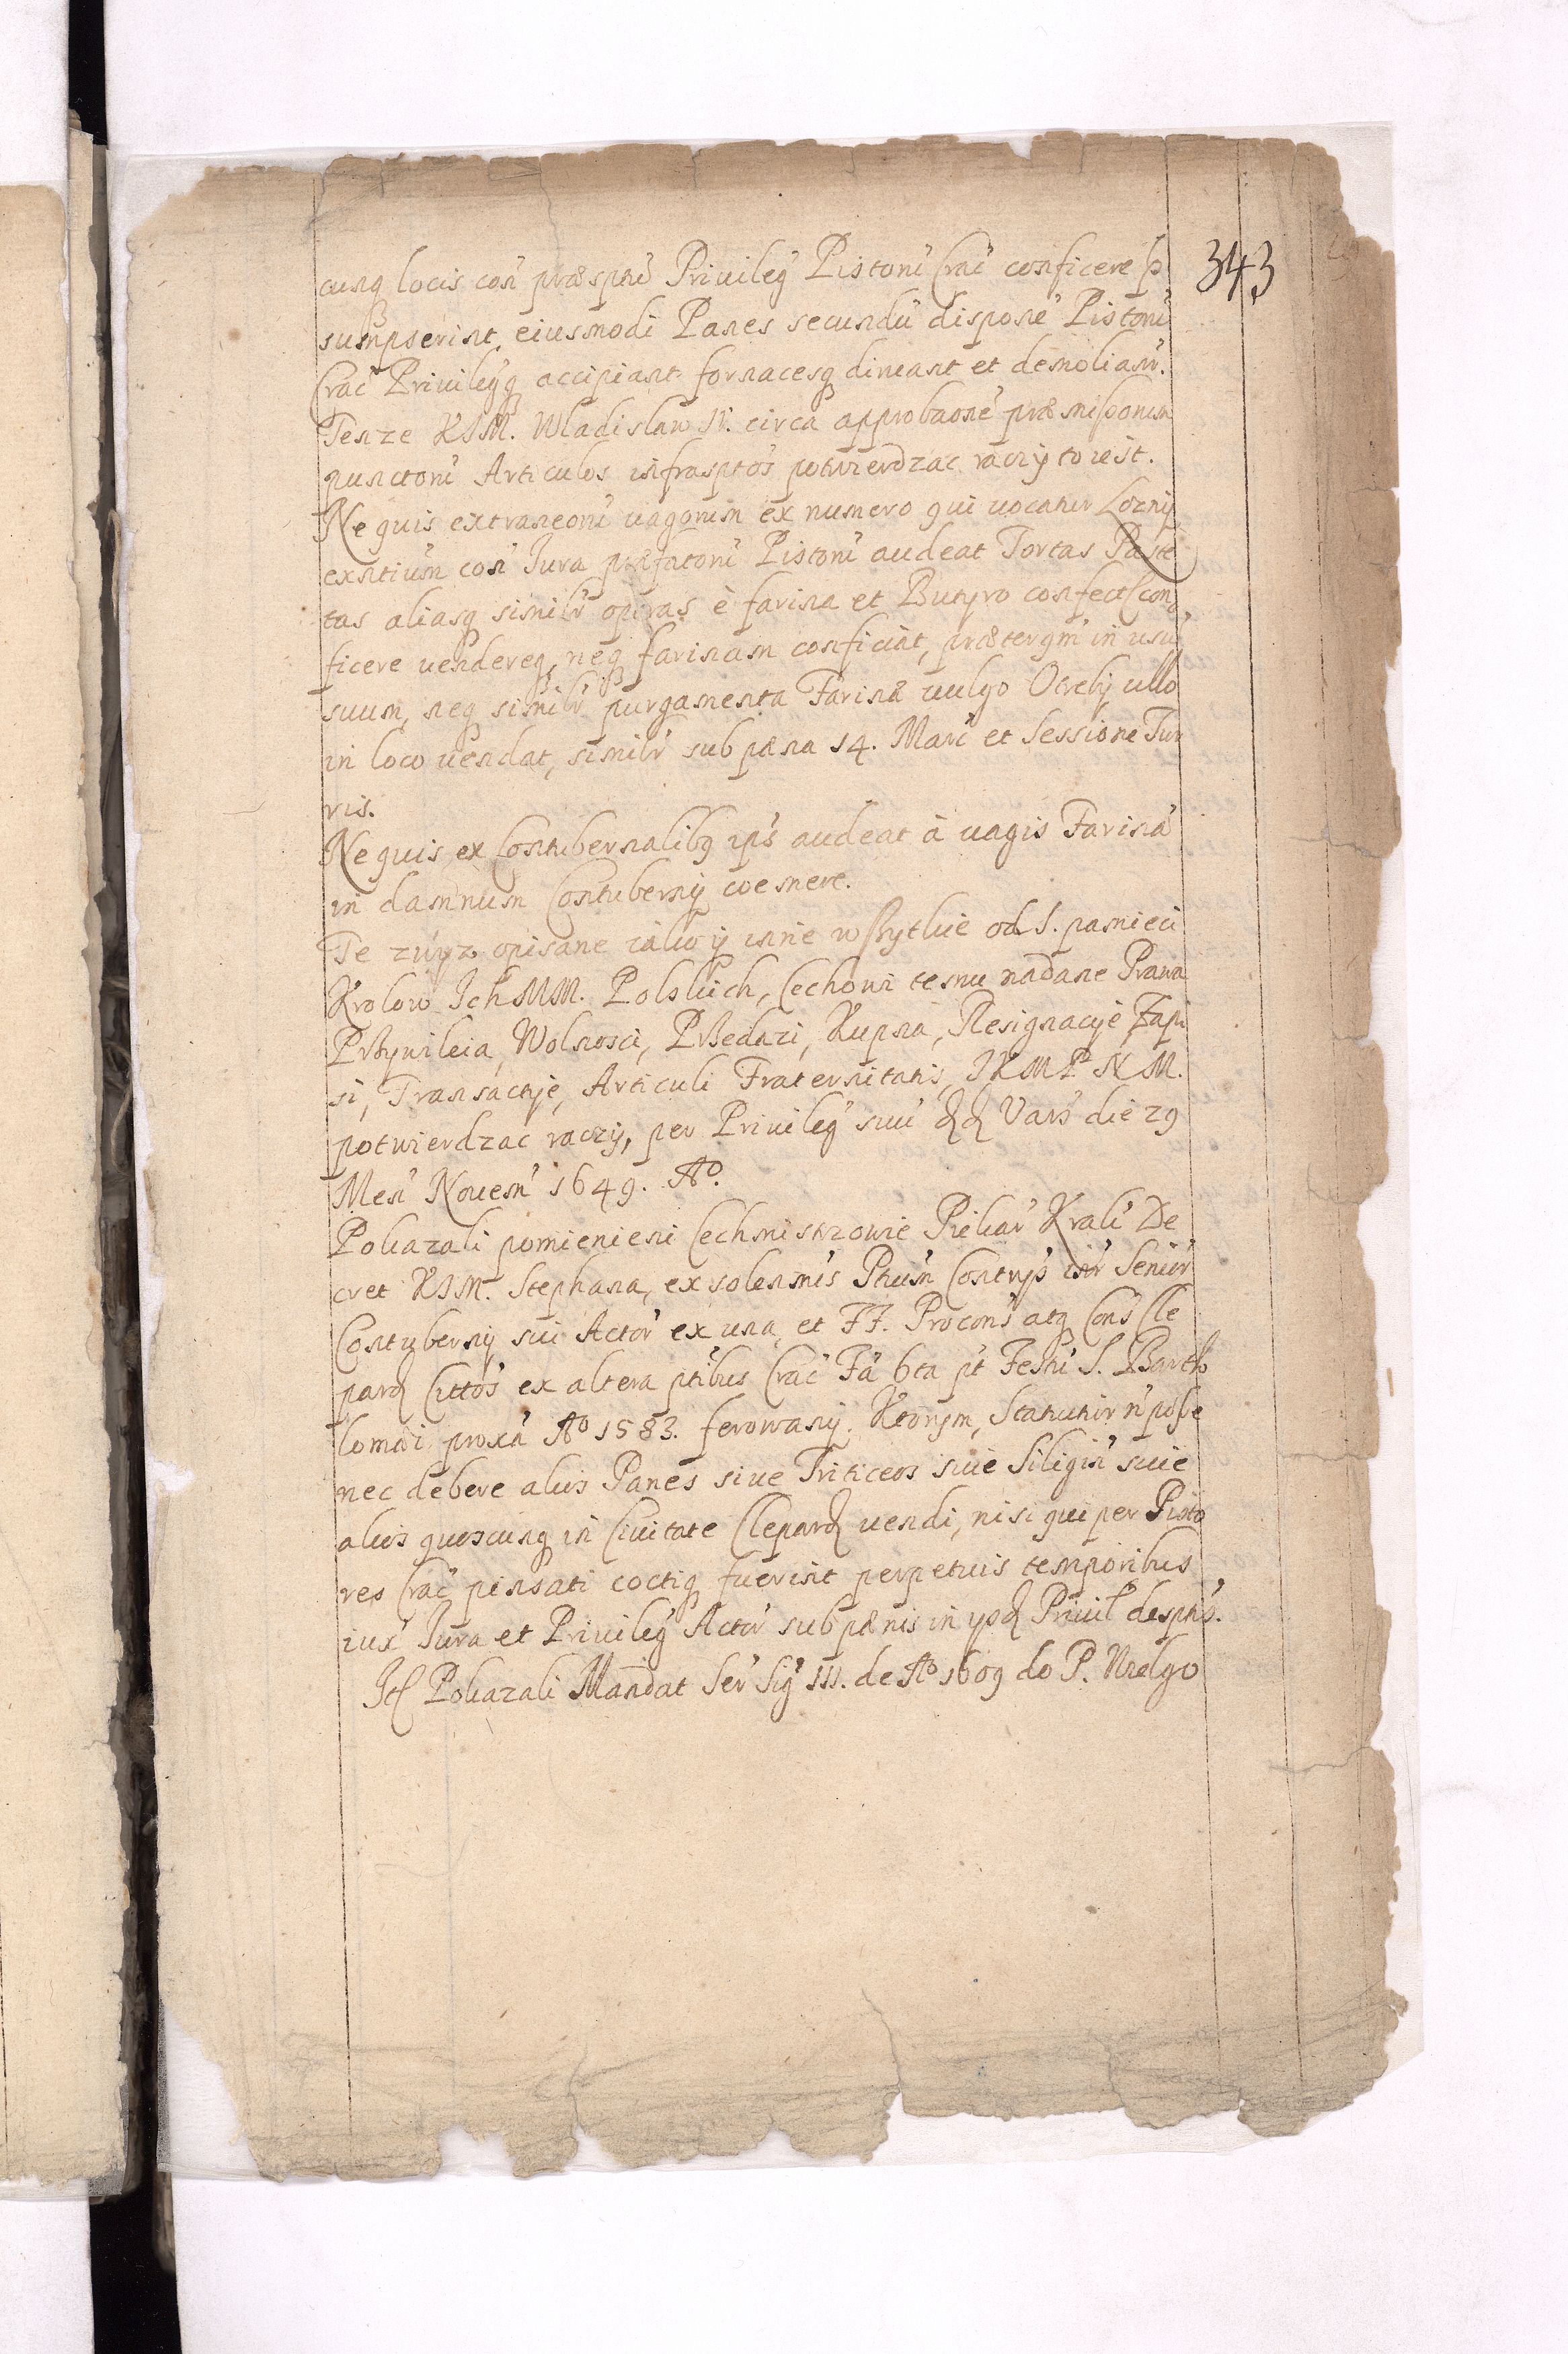 343
cunq locis con præsptu Privileg Pistoru Crac conficere p
sumpserint, eiusmodi Panes secundu disposne Pistoru
Crac Privilegq accipiant fornacesq diruant et demoliant.
Tenze KJM. Wladislaw IV. circa approbaone præmissorum
punctoru Articulos infrasptos potwierdzac raczy to iest.
Ne quis extraneoru vagorum ex numero qui vocantur Lozny
exntium con Jura præfatoru Pistoru audeat Tortas Paste
tas aliasq similr operas è farina et Butyro confect con
ficere vendereq, neq farinam conficiat, præterqm in usu
suum, neq similr purgamenta Farinæ vulgo Otreby ullo
in loco vendat, similr sub pæna 14. Marc et Sessione Tur
ris.
Ne quis ex Contubernalibq ips audeat à vagis Farina
in damnum Contuberny coemere.
Te zwyz opisane iako y inne wszytkie od S. pamieci
Krolow Ich MM. Polskich, Cechowi temu nadane Prawa
Przywileia, Wolnosci, Przedazi, Kupna, Resignacye, Zapi
si, Transactye, Articuli Fraternitatis, JKMP N M.
potwierdzac raczy, per Privileg suu Vars die 29
Men Novem 1649. Ao.
Pokazali pomienieni Cechmistrzowie Piekar Krak De
cret KJM. Stephana, ex solennis Ptium Contrys intr Senior
Contuberny sui Actor ex una, et FF. Procons atq Cons Cle
pard Cittos ex altera ptibus Crac Fa 6ta pt Festu S. Bartho
lomæi proxa Ao 1583. ferowany. Ktorym, Statuitur n posse
nec debere alios Panes sive Triticeos sive Siligin sive
alios quoscunq in Civitate Clepard vendi, nisi qui per Pisto
res Crac pinsati coctiq fuerint perpetuis temporibus
iux Jura et Privileg Actor sub pænis in ysd Privil desptis.
It Pokazali Mandat Ser Sig III. de Ao 1609 do P.